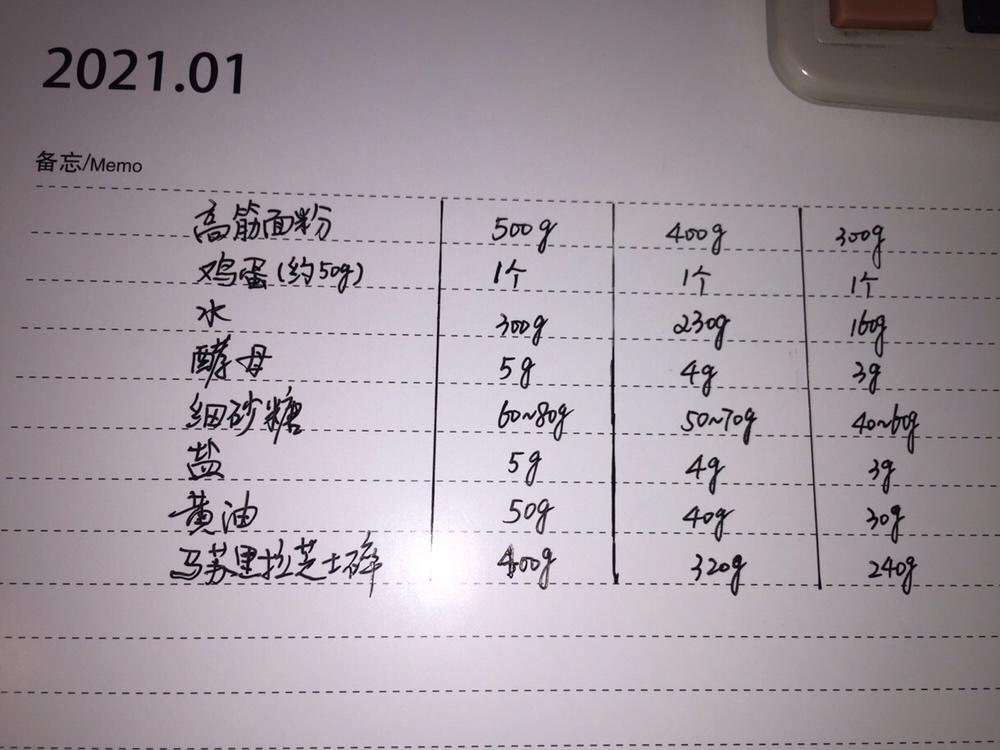 2021.01
备忘/Memo
高筋面粉 500g 400g 300g
鸡蛋(约50g) 1个 1个 1个
水 300g 230g 160g
酵母 5g 4g 3g
细砂糖 60~80g 50~70g 40~60g
盐 5g 4g 3g
黄油 50g 40g 30g
马苏里拉芝士碎 400g 320g 240g